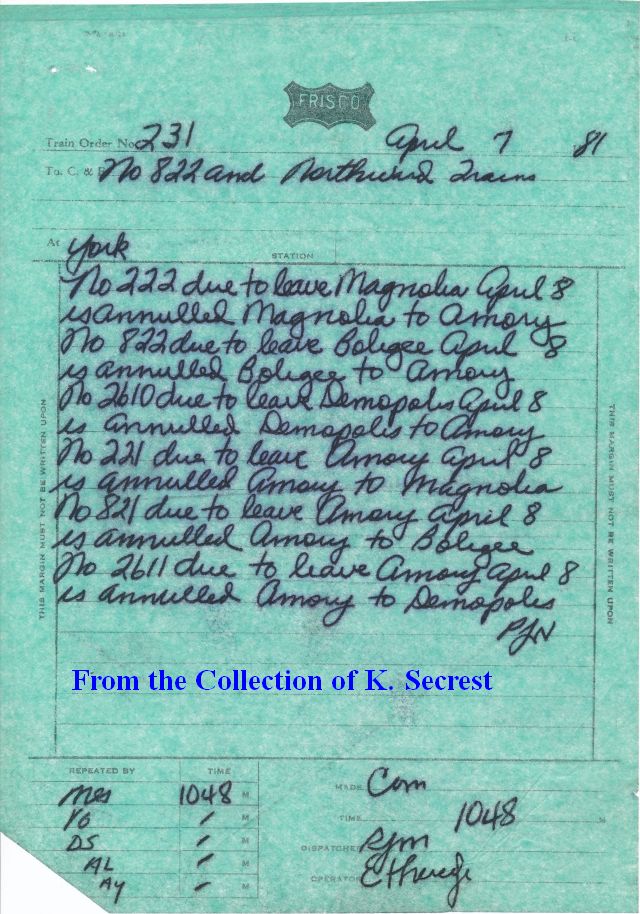 FRISCO
Train Order No. 231 April 7 81
To. C. & E. No 822 and Northward Trains
At York
STATION
No 222 due to leave Magnolia April 8
is annulled Magnolia to Amory
No 822 due to leave Boligee April 8
is annulled Boligee to Amory
No 2610 due to leave Demopolis April 8
is annulled Demopolis to Amory
No 221 due to leave Amory April 8
is annulled Amory to Magnolia
No 821 due to leave Amory April 8
is annulled Amory to Boligee
No 2611 due to leave Amory April 8
is annulled Amory to Demopolis
THIS MARGIN MUST NOT BE WRITTEN UPON
THIS MARGIN MUST NOT BE WRITTEN UPON
From the Collection of K. Secrest
REPEATED BY TIME
1048 M
YO M
DS M
AL M
AY
MADE Com
TIME 1048 M
DISPATCHER RJM
OPERATOR